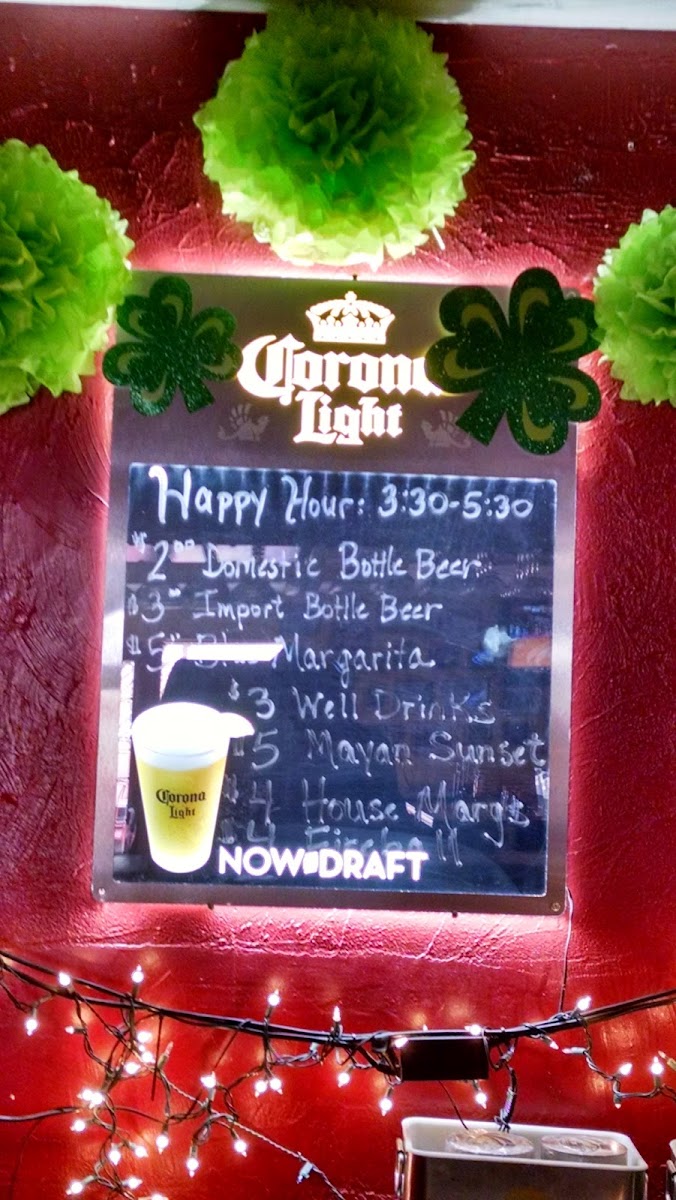 Corona
Light
Happy Hour: 3:30-5:30
$2.00 Domestic Bottle Beer
$3.00 Import Bottle Beer
$5.00 Blue Margarita
$3 Well Drinks
$5 Mayan Sunset
$4 House Marg's
$4 Fireball
Corona
Light
NOW ON DRAFT